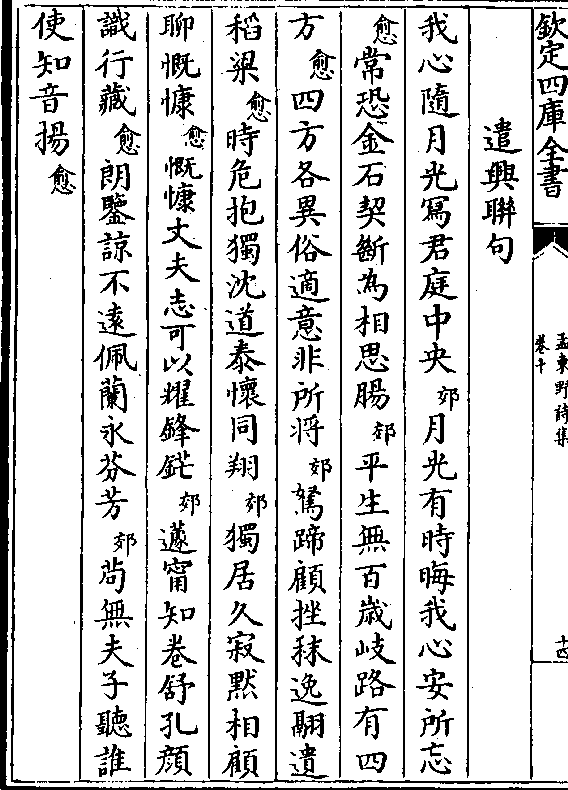 欽定四庫全書
孟東野詩集
卷十
十四
遣興聯句
我心隨月光寫君庭中央郊月光有時晦我心安所忘
愈常恐金石契斷為相思腸郊平生無百歲岐路有四
方愈四方各異俗適意非所將郊駑蹄顧挫秣逸翮遺
稻粱愈時危抱獨沈道泰懷同翔郊獨居久寂默相顧
聊慨慷愈慨慷丈夫志可以耀鋒鋩郊蘧甯知卷舒孔顔
識行藏愈朗鑒諒不遠佩蘭永芬芳郊茍無夫子聽誰
使知音揚愈